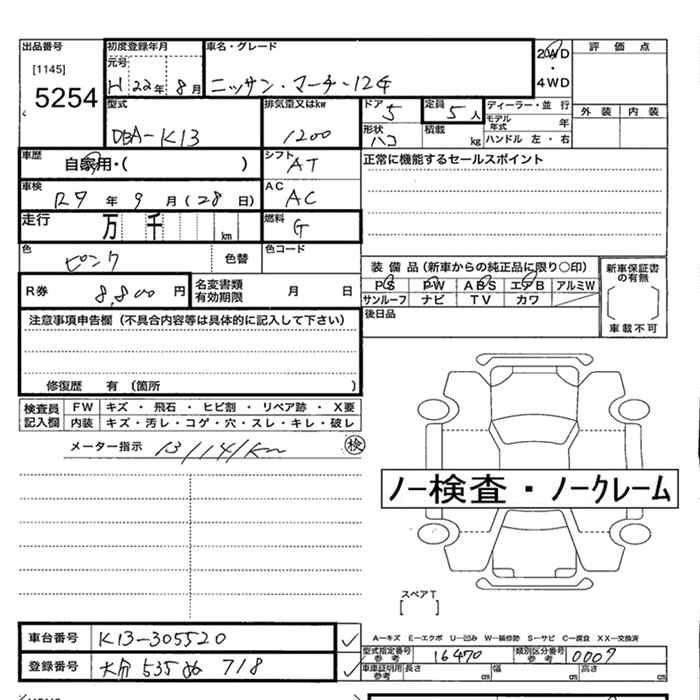 出品番号
[1145]
5254
初度登録年月
元号
H 22年 8月
車名・グレード
ニッサン・マーチ・12G
2WD
・
4WD
評価点
外装 内装
型式
DBA-K13
排気量又はkw
1200
ドア
5
定員
5人
ディーラー・並行
モデル年式 年
形状
ハコ
積載 kg
ハンドル 左・右
車歴
自家用・( )
シフト
AT
正常に機能するセールスポイント
車検
R7年 9月(28日)
AC
AC
走行
万 千 km
燃料
G
色
ピンク
色替
色コード
R券
8,800円
名変書類
有効期限
月 日
装備品(新車からの純正品に限り○印)
PS PW ABS エアB アルミW
サンルーフ ナビ TV カワ
後日品
新車保証書
の有無
[ ]
車載不可
注意事項申告欄(不具合内容等は具体的に記入して下さい)
修復歴 有(箇所 )
検査員
記入欄
FW キズ・飛石・ヒビ割・リペア跡・X要
内装 キズ・汚レ・コゲ・穴・スレ・キレ・破レ
メーター指示 131141km
検
ノー検査・ノークレーム
スペアT
[ ]
車台番号 K13-305520
登録番号 大分 535 ぬ 718
A−キズ E−エクボ U−凹み W−補修跡 S−サビ C−腐食 XX−交換済
型式指定番号
参考
16470
類別区分番号
参考
0007
車庫証明用
参考
長さ cm 幅 cm 高さ cm